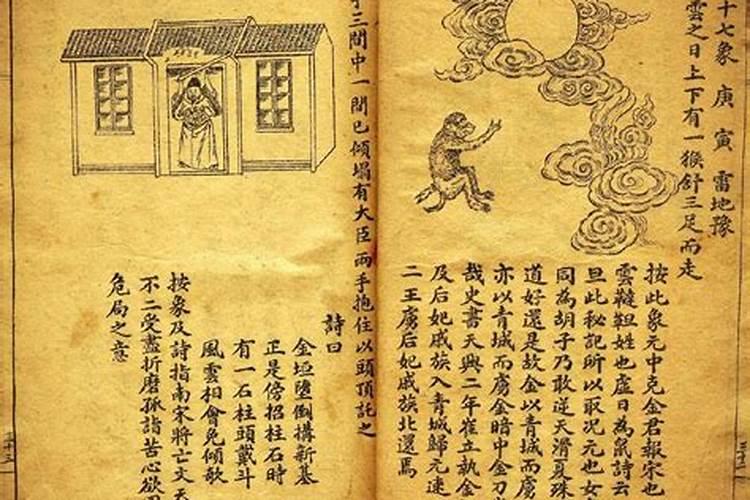 十七象 庚寅 雷地豫
雲之日上下有一猴舒三足而走
按此象元中克金君報宋也
雲韃靼姓也虛日為鼠詩云
旦此秘記所以取况元也女
同為胡子乃敢逆天滑夏殊
道好還是故金以青城而虜
亦以青城而虜金暗中金刀
哉史書天興二年崔立執金
及后妃戚族入青城歸元速
二王虜后妃戚族北還焉
三間中一間已傾塌有大臣兩手抱住以頭頂託之
詩曰
金垣墮倒搆新基
正是傍招柱石時
有一石柱頭戴斗
風雲相會免傾歌
按象及詩指南宋將亡文天
不二受盡折磨孤詣苦心欲
危局之意